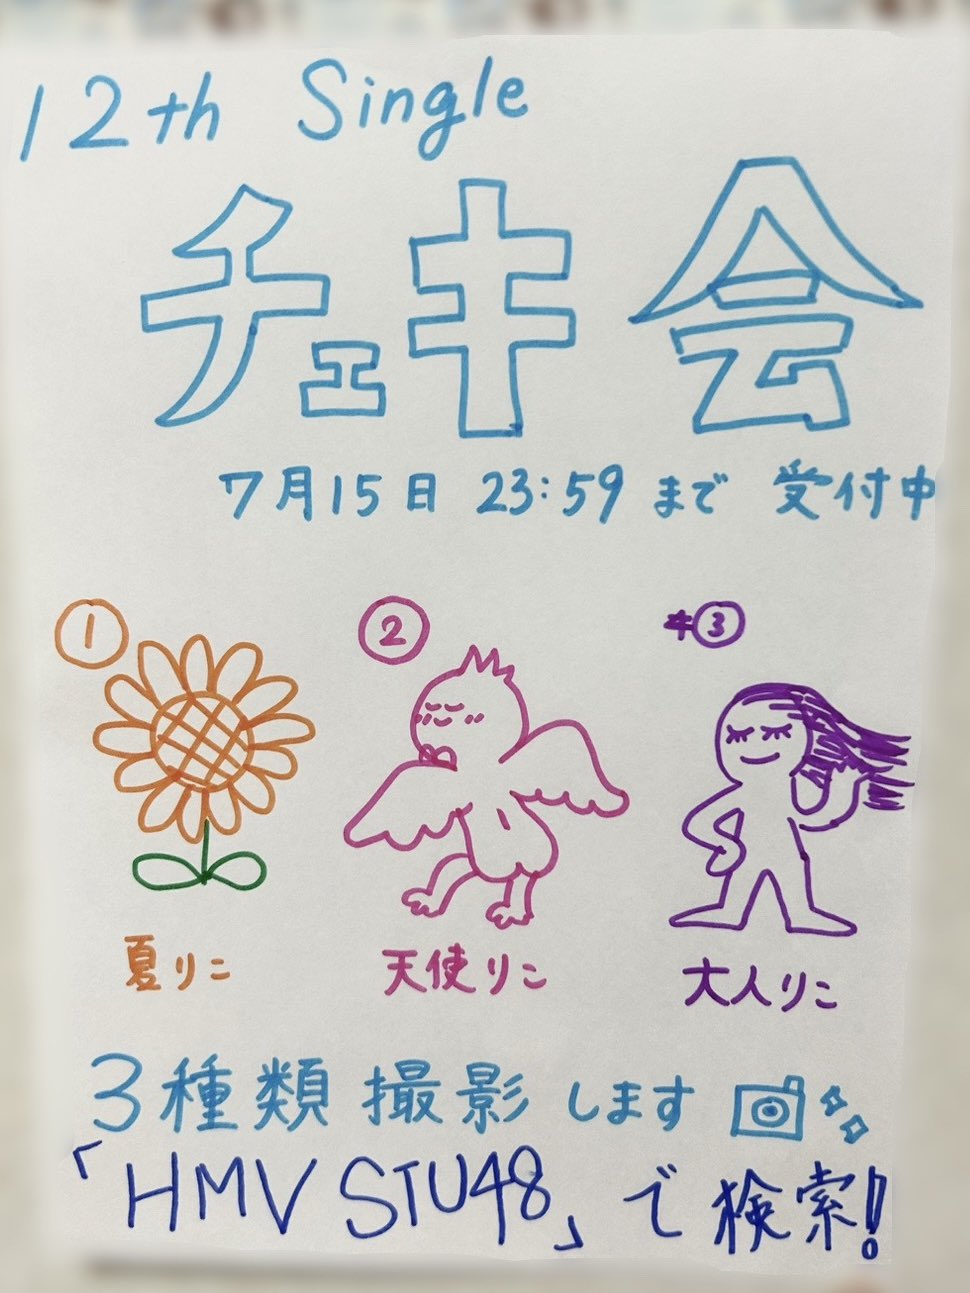 12th Single
チェキ会
7月15日 23:59 まで 受付中
① ② ③
夏りこ 天使りこ 大人りこ
3種類撮影します
「HMV STU48」で検索!